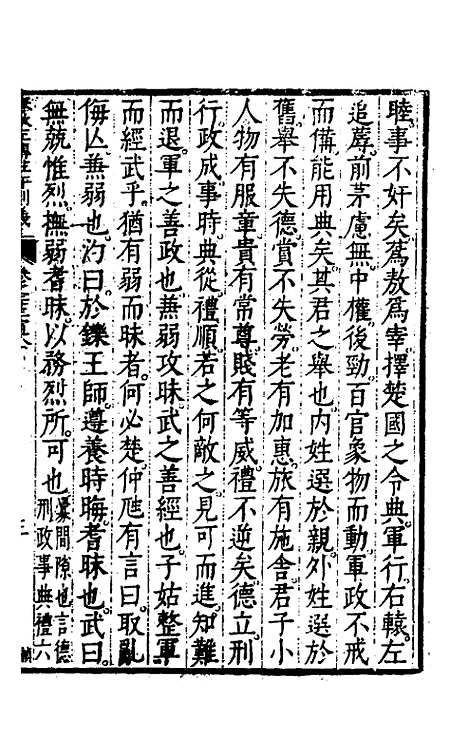 睦事不奸矣蒍敖爲宰擇楚國之令典軍行右轅左
追蓐前茅慮無中權後勁百官象物而動軍政不戒
而備能用典矣其君之舉也内姓選於親外姓選於
舊舉不失德賞不失勞老有加惠旅有施舍君子小
人物有服章貴有常尊賤有等威禮不逆矣德立刑
行政成事時典從禮順若之何敵之見可而進知難
而退軍之善政也兼弱攻昧武之善經也子姑整軍
而經武乎猶有弱而昧者何必楚仲虺有言曰取亂
侮亾兼弱也汋曰於鑠王師遵養時晦耆昧也武曰
無競惟烈撫弱耆昧以務烈所可也釁間隙也言德
刑政事典禮六